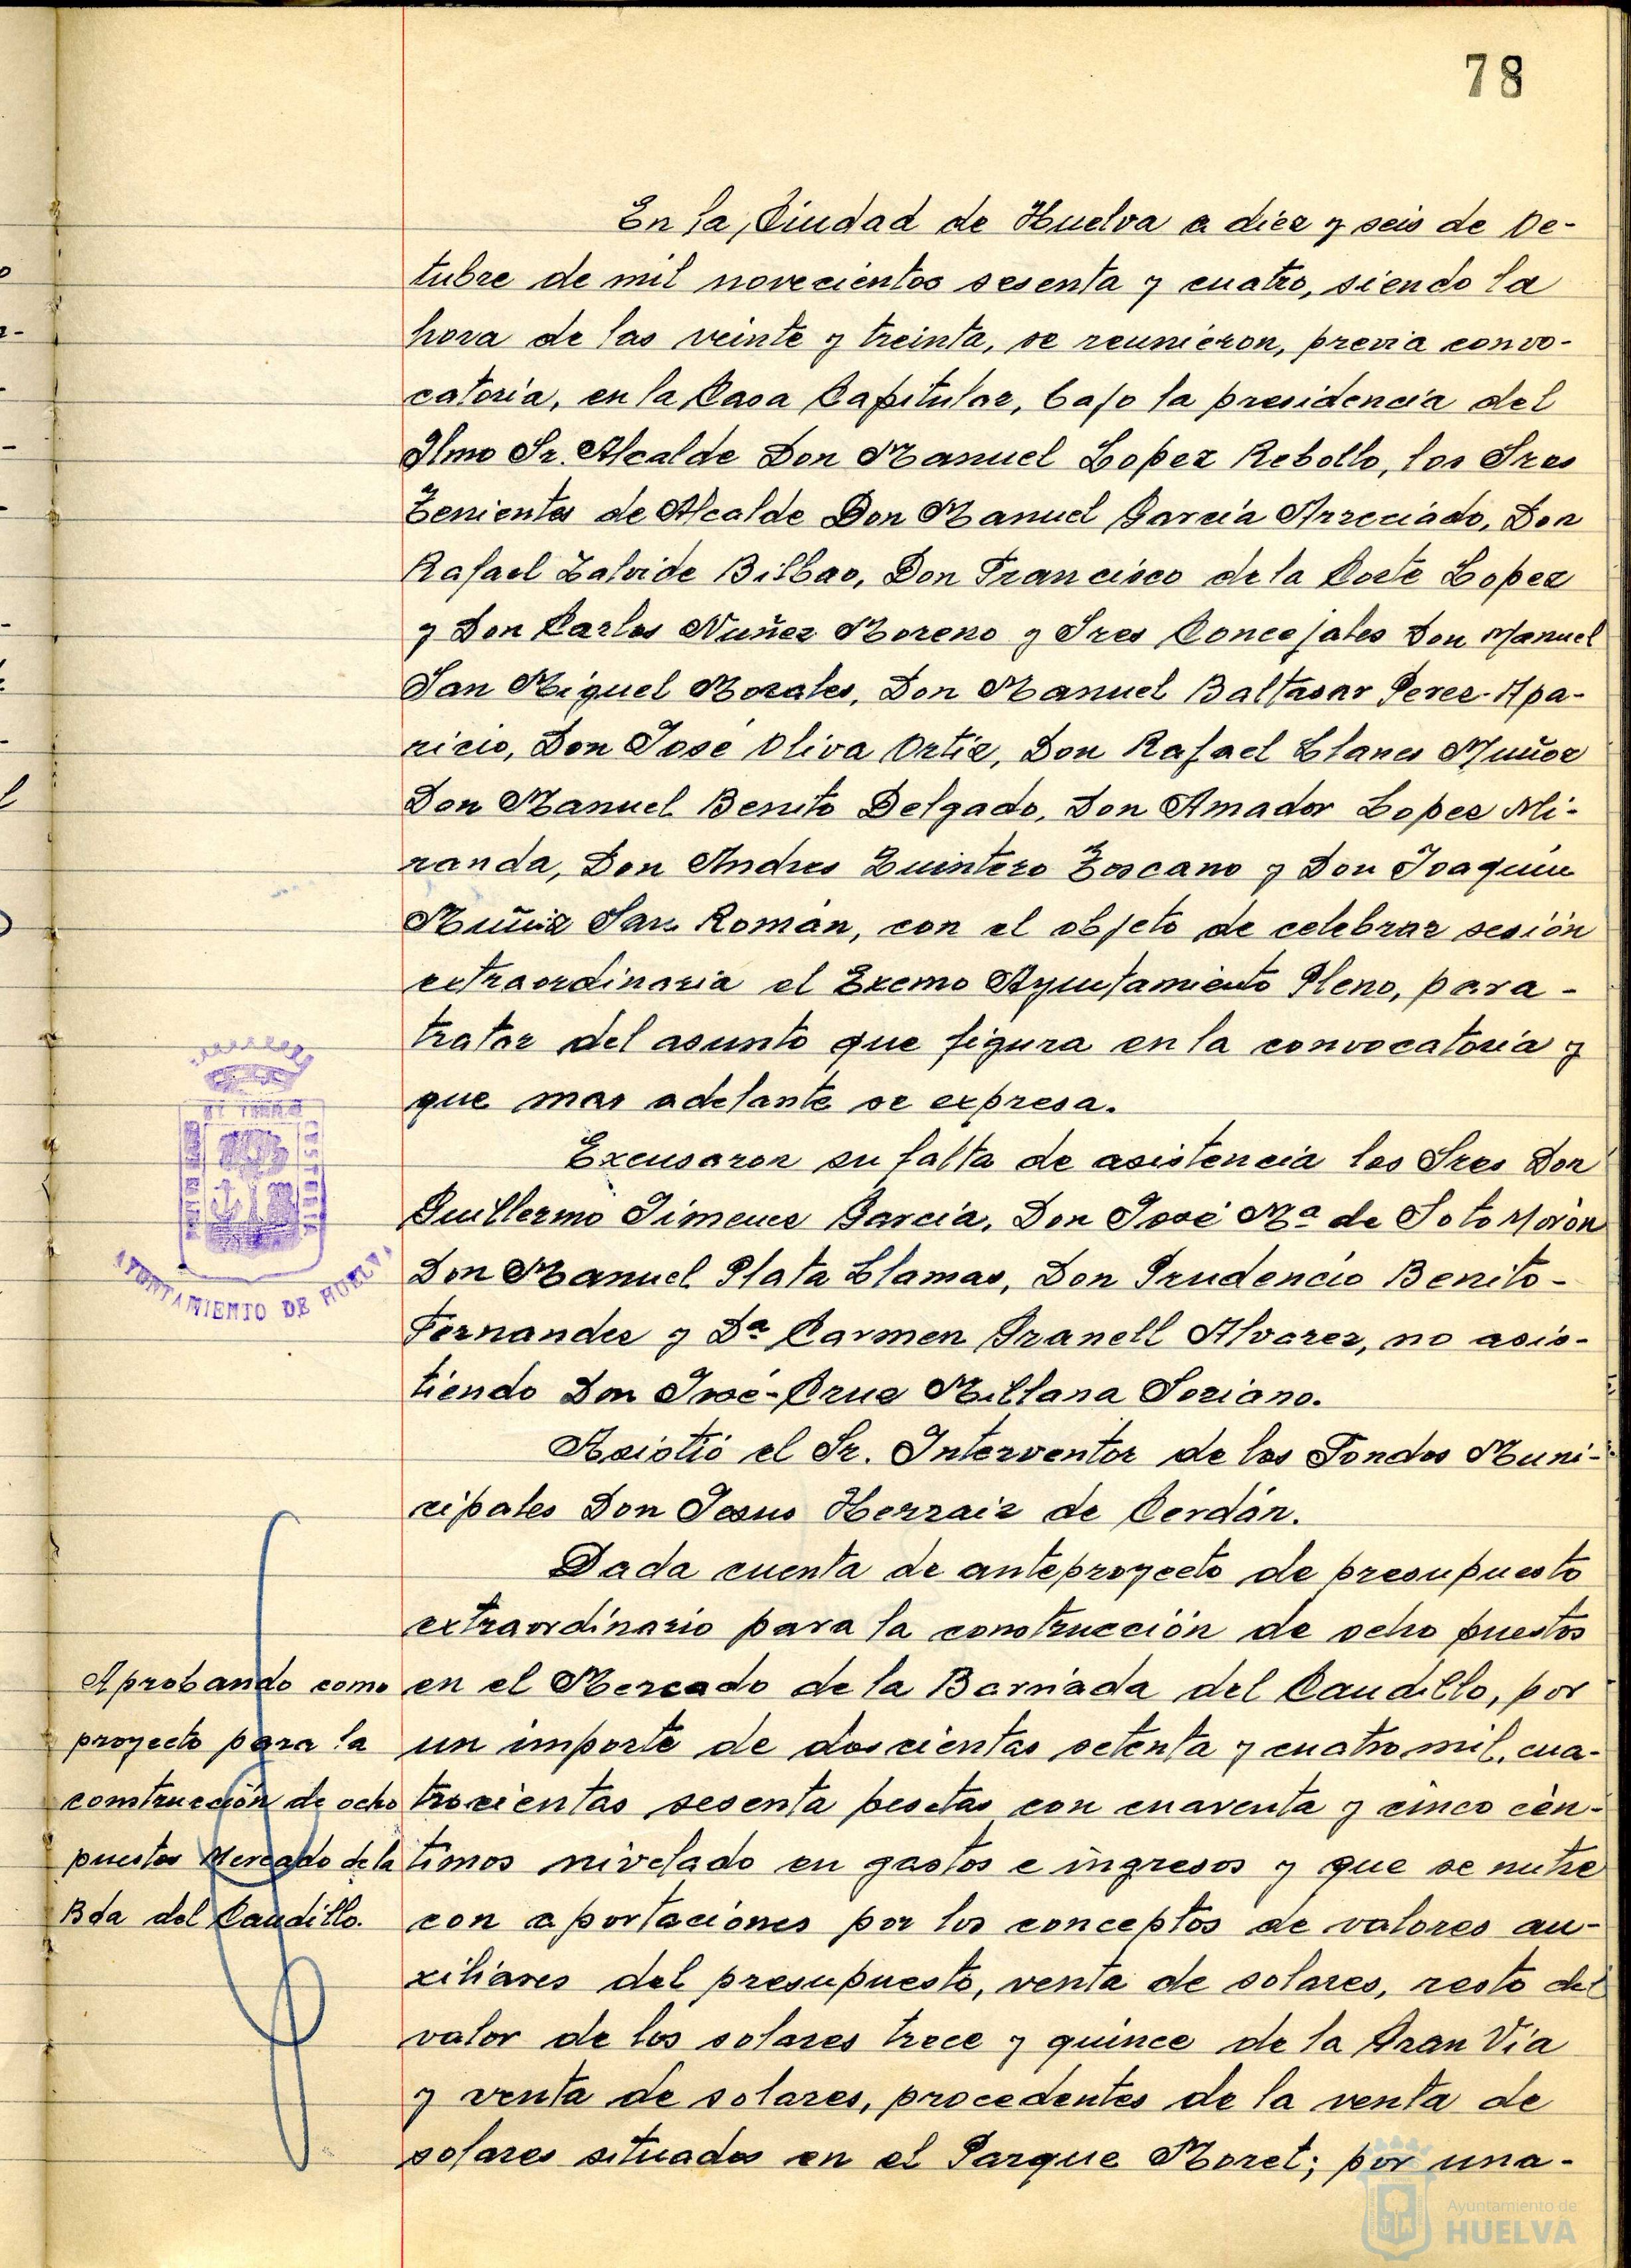 78
En la Ciudad de Huelva a diez y seis de Oc-
tubre de mil novecientos sesenta y cuatro, siendo la
hora de las veinte y treinta, se reunieron, previa convo-
catoria, en la Casa Capitular, bajo la presidencia del
Ilmo Sr. Alcalde Don Manuel Lopez Rebollo, los Sres
Tenientes de Alcalde Don Manuel García Arreciado, Don
Rafael Zalvide Bilbao, Don Francisco de la Corte Lopez
y Don Carlos Nuñez Moreno y Sres Concejales Don Manuel
San Miguel Morales, Don Manuel Baltasar Perez-Apa-
ricio, Don José Oliva Ortiz, Don Rafael Llanes Muñoz
Don Manuel Benito Delgado, Don Amador Lopez Mi-
randa, Don Andres Quintero Toscano y Don Joaquin
Muñiz San Román, con el objeto de celebrar sesión
extraordinaria el Excmo Ayuntamiento Pleno, para-
tratar del asunto que figura en la convocatoria y
que mas adelante se expresa.
Excusaron su falta de asistencia los Sres Don
Guillermo Jimenez García, Don José Mª de Soto Morón
Don Manuel Plata Llamas, Don Prudencio Benito-
Fernandez y Dª Carmen Granell Alvarez, no asis-
tiendo Don José-Cruz Millana Soriano.
Asistió el Sr. Interventor de los Fondos Muni-
cipales Don Jesus Herraiz de Cerdán.
Dada cuenta de anteproyecto de presupuesto
extraordinario para la construcción de ocho puestos
en el Mercado de la Barriada del Caudillo, por
un importe de doscientas setenta y cuatro mil, cua-
trocientas sesenta pesetas con cuarenta y cinco cén-
timos nivelado en gastos e ingresos y que se nutre
con aportaciones por los conceptos de valores au-
xiliares del presupuesto, venta de solares, resto del
valor de los solares trece y quince de la Gran Vía
y venta de solares, procedentes de la venta de
solares situados en el Parque Moret; por una-
AYUNTAMIENTO DE HUELVA
Aprobando como
proyecto para la
construcción de ocho
puestos Mercado de la
Bda del Caudillo.
Ayuntamiento de
HUELVA